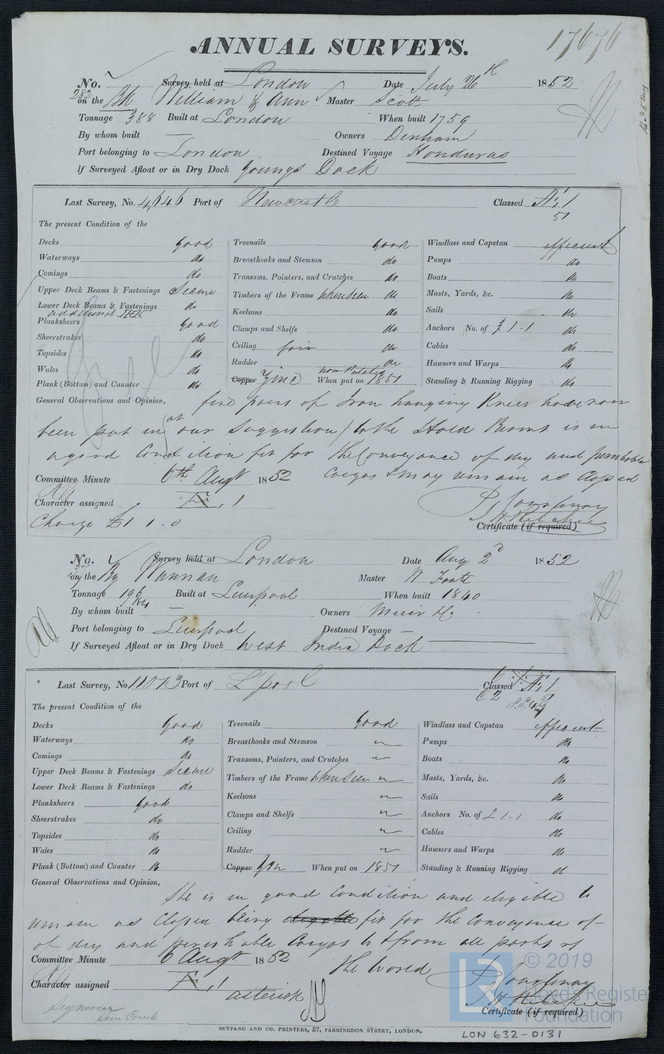 17676
ANNUAL SURVEYS.
No. 282 Survey held at London Date July 26th 1852
on the Bk William & Ann Master Scott
Tonnage 388 Built at London When built 1759
By whom built — Owners Denham
Port belonging to London Destined Voyage Honduras
If Surveyed Afloat or in Dry Dock Youngs Dock
Last Survey, No. 4646 Port of Newcastle Classed Æ 1
51
The present Condition of the
Decks good Treenails Good Windlass and Capstan efficient
Waterways do Breasthooks and Stemson do Pumps do
Comings do Transoms, Pointers, and Crutches do Boats do
Upper Deck Beams & Fastenings Secure Timbers of the Frame when seen do Masts, Yards, &c. do
Lower Deck Beams & Fastenings do Keelsons do Sails do
additional
Planksheers Good Clamps and Shelfs do Anchors No. of 3.1.1 do
Sheerstrakes do Ceiling fair do Cables do
Topsides do Rudder do Hawsers and Warps do
Wales do Copper Zinc When put on 1851 Standing & Running Rigging do
Plank (Bottom) and Counter do
General Observations and Opinion, five pairs of Iron hanging Knees have now
been put in (at our Suggestion) to the Hold Beams is in
a good Condition fit for the Conveyance of dry and perishable
Cargos & may remain as Classed
Committee Minute 6th Augt 1852
Character assigned Æ 1
Charge £1 1.0
P Courtenay
Certificate (if required)
No. Survey held at London Date Aug 2d 1852
on the Bg Hannah Master W Foote
Tonnage 196 Built at Liverpool When built 1840
By whom built — Owners Muir &c.
Port belonging to Liverpool Destined Voyage —
If Surveyed Afloat or in Dry Dock West India Dock
Last Survey, No. 11013 Port of Lpool Classed Æ 1
The present Condition of the
Decks Good Treenails Good Windlass and Capstan efficient
Waterways do Breasthooks and Stemson " Pumps do
Comings do Transoms, Pointers, and Crutches " Boats do
Upper Deck Beams & Fastenings Secure Timbers of the Frame when seen " Masts, Yards, &c. do
Lower Deck Beams & Fastenings do Keelsons " Sails do
Planksheers Good Clamps and Shelfs " Anchors No. of 2.1.1 do
Sheerstrakes do Ceiling " Cables do
Topsides do Rudder " Hawsers and Warps do
Wales do Copper When put on 1851 Standing & Running Rigging do
Plank (Bottom) and Counter do
General Observations and Opinion,
She is in good Condition and eligible to
remain as Classed being fit for the Conveyance of
of dry and perishable Cargos to & from all parts of
the World
Committee Minute 6 Augt 1852
Character assigned Æ 1
asterisk
P Courtenay
Certificate (if required)
SEYFANG AND CO. PRINTERS, 57, FARRINGDON STREET, LONDON.
LON 632-0131
© 2019
LR Lloyd's Register
Foundation